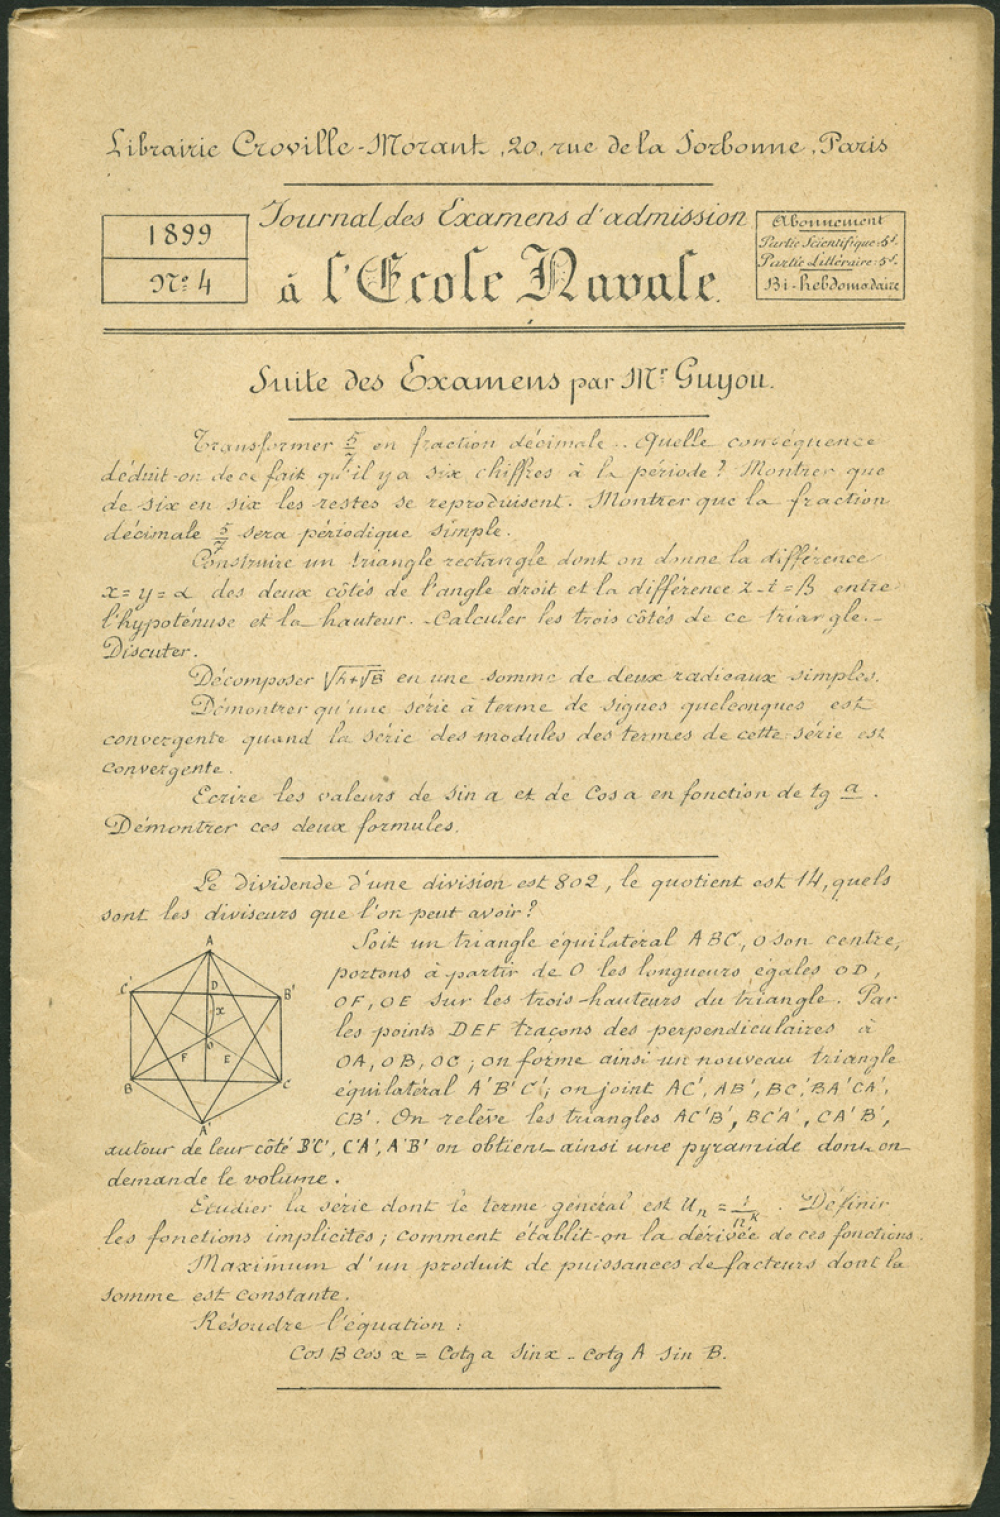 Librairie Croville-Morant, 20, rue de la Sorbonne, Paris
1899
No 4
Journal des Examens d'admission
à l'Ecole Navale.
Abonnement
Partie Scientifique: 5f.
Partie Littéraire: 5f.
Bi-hebdomadaire
Suite des Examens par Mr Guyou.
Transformer 5/7 en fraction décimale.. Quelle conséquence
déduit-on de ce fait qu'il y a six chiffres à la période? Montrer que
de six en six les restes se reproduisent. Montrer que la fraction
décimale 5/7 sera périodique simple.
Construire un triangle rectangle dont on donne la différence
x=y=α des deux côtés de l'angle droit et la différence z-t=β entre
l'hypoténuse et la hauteur. - Calculer les trois côtés de ce triangle. -
Discuter.
Décomposer √A+√B en une somme de deux radicaux simples.
Démontrer qu'une série à terme de signes quelconques est
convergente quand la série des modules des termes de cette série est
convergente.
Ecrire les valeurs de sin a et de Cos a en fonction de tg a.
Démontrer ces deux formules.
Le dividende d'une division est 802, le quotient est 14, quels
sont les diviseurs que l'on peut avoir?
A
C'
D
B'
x
O
F
E
B
C
A'
Soit un triangle équilatéral ABC, O son centre,
portons à partir de O les longueurs égales OD,
OF, OE sur les trois hauteurs du triangle. Par
les points DEF traçons des perpendiculaires à
OA, OB, OC; on forme ainsi un nouveau triangle
équilatéral A'B'C'; on joint AC', AB', BC', BA' CA',
CB'. On relève les triangles AC'B', BC'A', CA'B',
autour de leur côté B'C', C'A', A'B' on obtient ainsi une pyramide dont on
demande le volume.
Etudier la série dont le terme général est Un = 1/n^K. Définir
les fonctions implicites; comment établit-on la dérivée de ces fonctions.
Maximum d'un produit de puissances de facteurs dont la
somme est constante.
Résoudre l'équation:
Cos B cos x = Cotg a sin x - cotg A sin B.